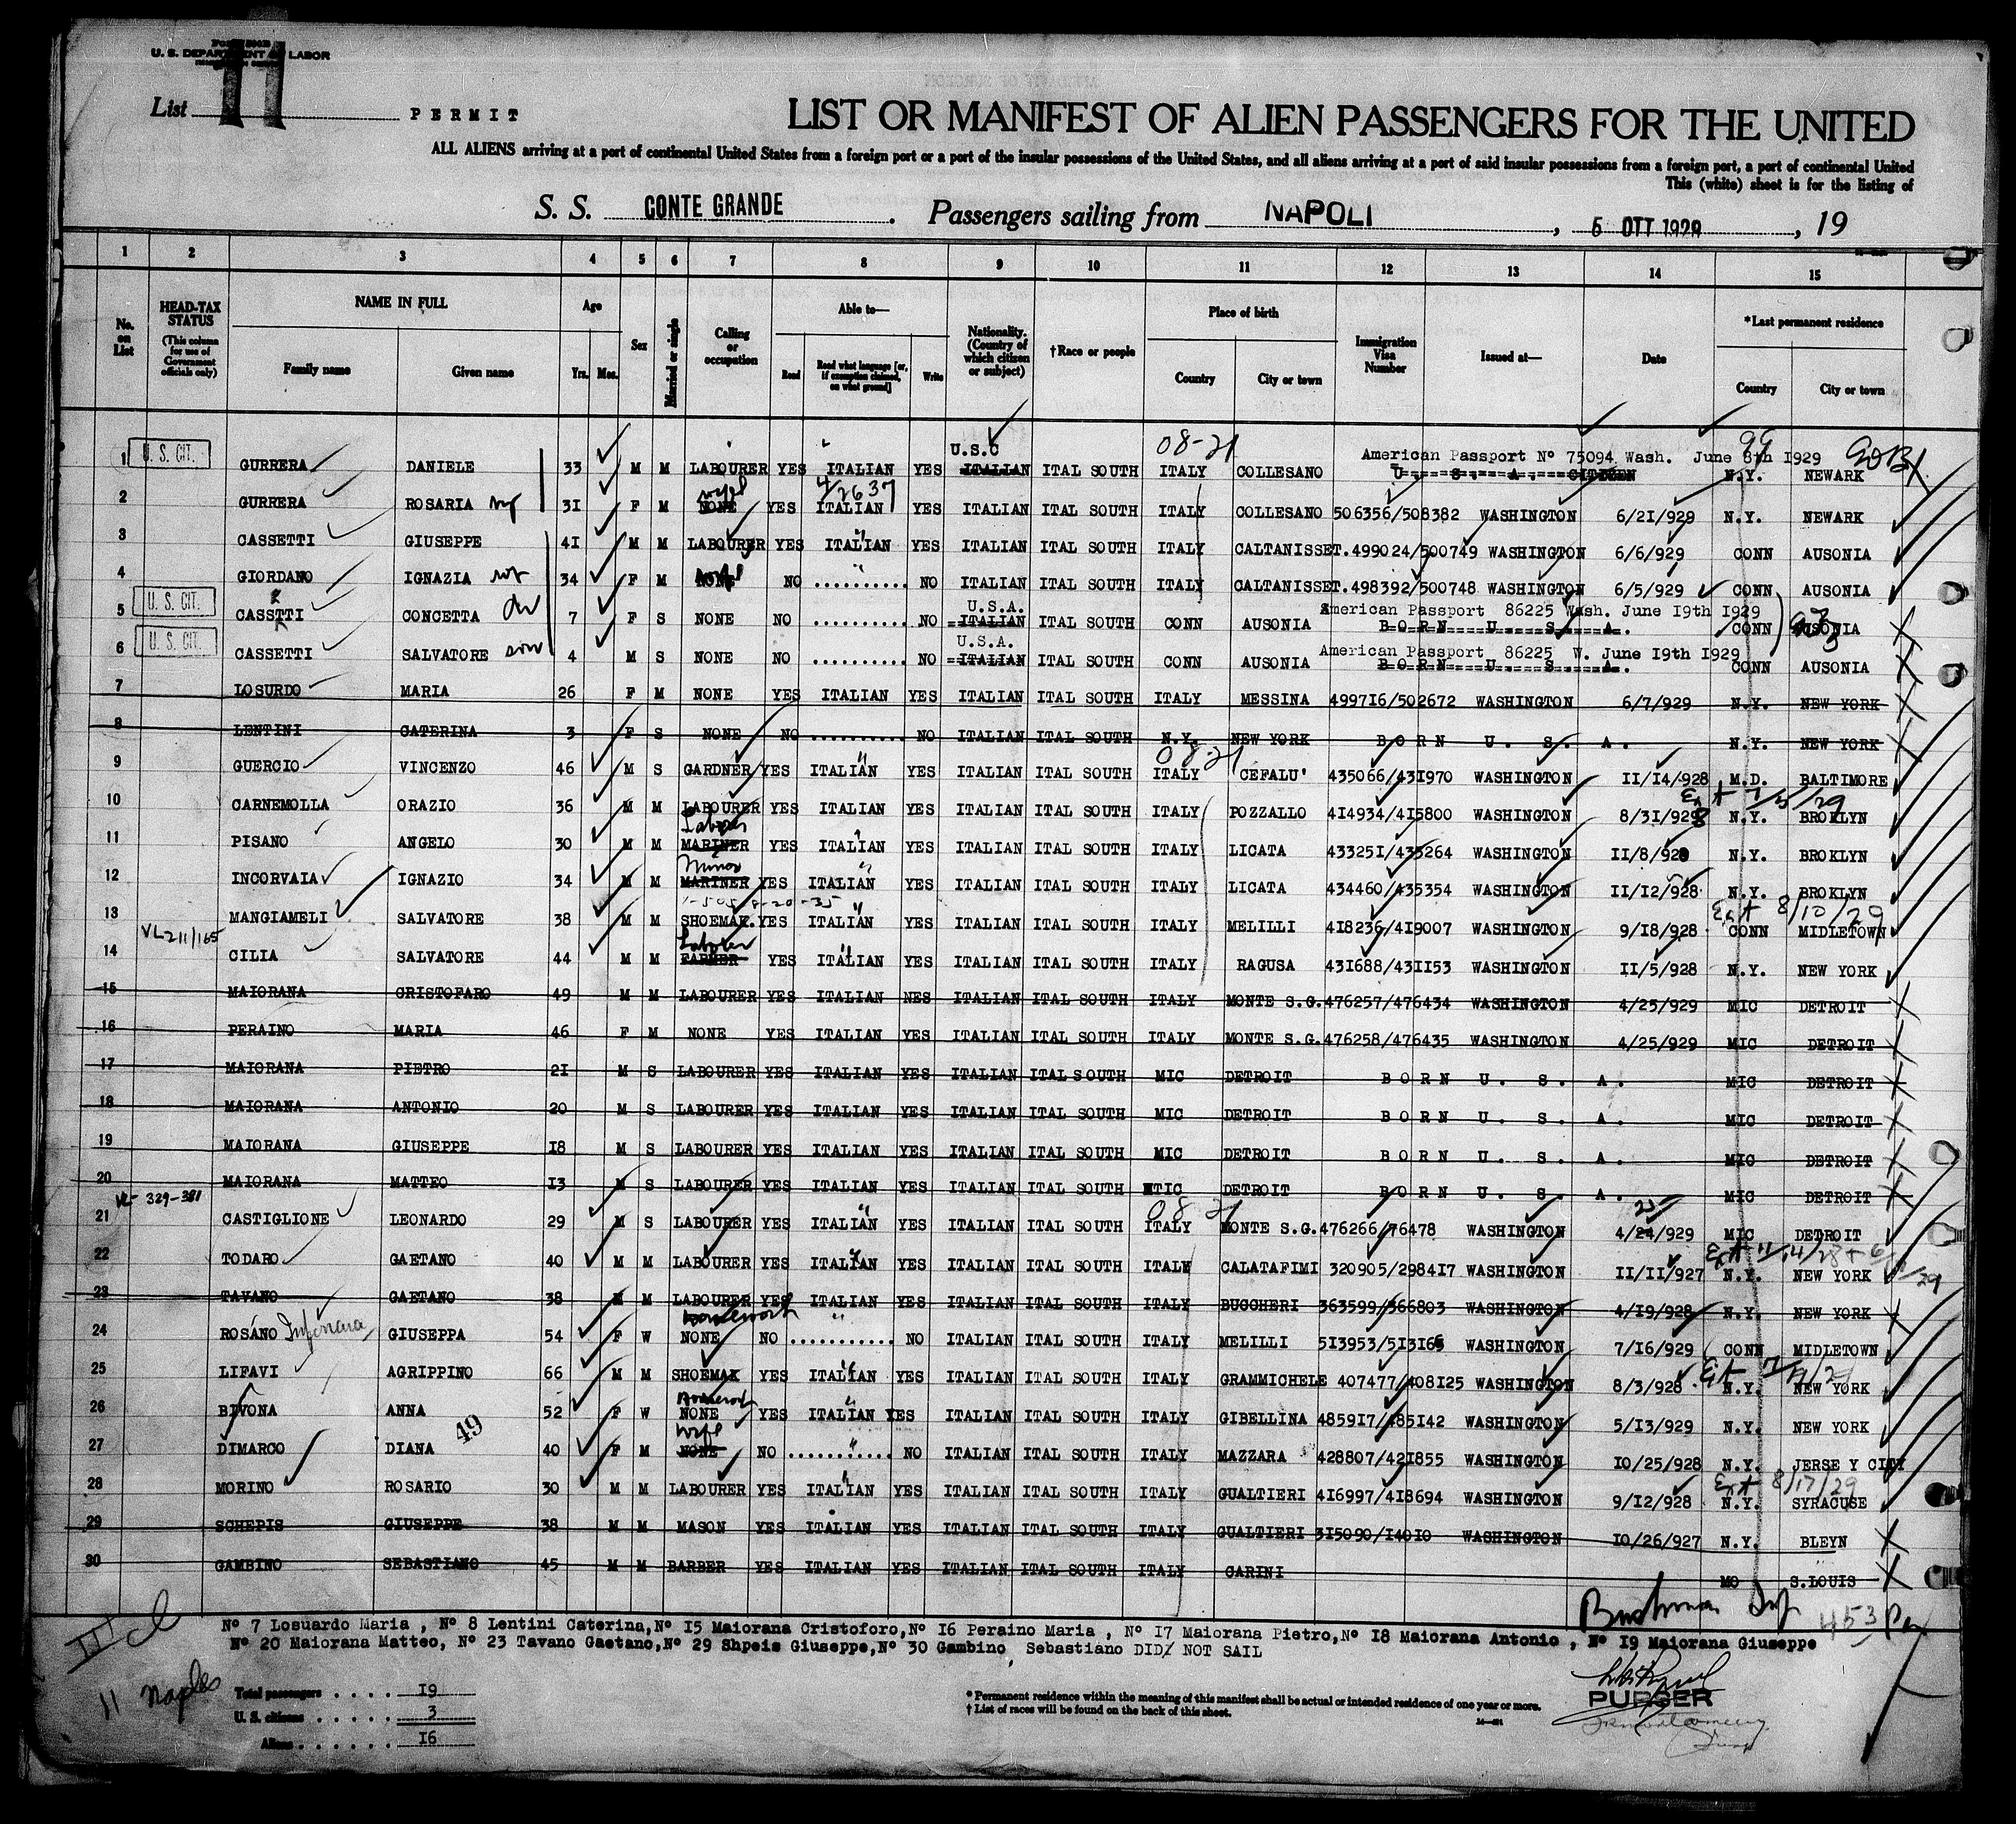 U. S. DEPARTMENT OF LABOR
List 11 PERMIT
LIST OR MANIFEST OF ALIEN PASSENGERS FOR THE UNITED
ALL ALIENS arriving at a port of continental United States from a foreign port or a port of the insular possessions of the United States, and all aliens arriving at a port of said insular possessions from a foreign port, a port of continental United
This (white) sheet is for the listing of
S. S. CONTE GRANDE . Passengers sailing from NAPOLI , 5 OTT 1929 , 19
1 2 3 4 5 6 7 8 9 10 11 12 13 14 15
No. on List
HEAD-TAX STATUS (This column for use of Government officials only)
NAME IN FULL Family name Given name
Age Yrs. Mos.
Sex
Married or single
Calling or occupation
Able to— Read Read what language [or, if exemption claimed, on what ground] Write
Nationality. (Country of which citizen or subject)
†Race or people
Place of birth Country City or town
Immigration Visa Number
Issued at—
Date
*Last permanent residence Country City or town
U.S.C 08-21 American Passport Nº 75094 Wash. June 8th 1929 99
1 U. S. CIT. GURRERA DANIELE 33 M M LABOURER YES ITALIAN YES ITALIAN ITAL SOUTH ITALY COLLESANO U. S. A. CITIZEN N.Y. NEWARK
wife 4/2637
2 GURRERA ROSARIA wf 31 F M NONE YES ITALIAN YES ITALIAN ITAL SOUTH ITALY COLLESANO 506356/508382 WASHINGTON 6/21/929 N.Y. NEWARK
3 CASSETTI GIUSEPPE 41 M M LABOURER YES ITALIAN YES ITALIAN ITAL SOUTH ITALY CALTANISSET. 499024/500749 WASHINGTON 6/6/929 CONN AUSONIA
4 GIORDANO IGNAZIA wf 34 F M NONE NO .......... NO ITALIAN ITAL SOUTH ITALY CALTANISSET. 498392/500748 WASHINGTON 6/5/929 CONN AUSONIA
U.S.A. American Passport 86225 Wash. June 19th 1929
5 U. S. CIT. CASSTTI CONCETTA 7 F S NONE NO .......... NO ITALIAN ITAL SOUTH CONN AUSONIA BORN U. S. A. CONN AUSONIA
U.S.A. American Passport 86225 W. June 19th 1929
6 U. S. CIT. CASSETTI SALVATORE son 4 M S NONE NO .......... NO ITALIAN ITAL SOUTH CONN AUSONIA BORN U. S. A. CONN AUSONIA
7 LOSURDO MARIA 26 F M NONE YES ITALIAN YES ITALIAN ITAL SOUTH ITALY MESSINA 499716/502672 WASHINGTON 6/7/929 N.Y. NEW YORK
8 LENTINI CATERINA 3 F S NONE NO .......... NO ITALIAN ITAL SOUTH N.Y. NEW YORK BORN U. S. A. N.Y. NEW YORK
08-21
9 GUERCIO VINCENZO 46 M S GARDNER YES ITALIAN YES ITALIAN ITAL SOUTH ITALY CEFALU' 435066/431970 WASHINGTON 11/14/928 M.D. BALTIMORE
10 CARNEMOLLA ORAZIO 36 M M LABOURER YES ITALIAN YES ITALIAN ITAL SOUTH ITALY POZZALLO 414934/415800 WASHINGTON 8/31/928 N.Y. BROKLYN
Laborer
11 PISANO ANGELO 30 M M MARINER YES ITALIAN YES ITALIAN ITAL SOUTH ITALY LICATA 433251/435264 WASHINGTON 11/8/928 N.Y. BROKLYN
Miner
12 INCORVAIA IGNAZIO 34 M M MARINER YES ITALIAN YES ITALIAN ITAL SOUTH ITALY LICATA 434460/435354 WASHINGTON 11/12/928 N.Y. BROKLYN
Ext 8/10/29
13 MANGIAMELI SALVATORE 38 M M SHOEMAK. YES ITALIAN YES ITALIAN ITAL SOUTH ITALY MELILLI 418236/419007 WASHINGTON 9/18/928 CONN MIDLETOWN
VL211/165 Laborer
14 CILIA SALVATORE 44 M M FARMER YES ITALIAN YES ITALIAN ITAL SOUTH ITALY RAGUSA 431688/431153 WASHINGTON 11/5/928 N.Y. NEW YORK
15 MAIORANA CRISTOFARO 49 M M LABOURER YES ITALIAN NES ITALIAN ITAL SOUTH ITALY MONTE S.G. 476257/476434 WASHINGTON 4/25/929 MIC DETROIT
16 PERAINO MARIA 46 F M NONE YES ITALIAN YES ITALIAN ITAL SOUTH ITALY MONTE S.G. 476258/476435 WASHINGTON 4/25/929 MIC DETROIT
17 MAIORANA PIETRO 21 M S LABOURER YES ITALIAN YES ITALIAN ITAL SOUTH MIC DETROIT BORN U. S. A. MIC DETROIT
18 MAIORANA ANTONIO 20 M S LABOURER YES ITALIAN YES ITALIAN ITAL SOUTH MIC DETROIT BORN U. S. A. MIC DETROIT
19 MAIORANA GIUSEPPE 18 M S LABOURER YES ITALIAN YES ITALIAN ITAL SOUTH MIC DETROIT BORN U. S. A. MIC DETROIT
20 MAIORANA MATTEO 13 M S LABOURER YES ITALIAN YES ITALIAN ITAL SOUTH MTIC DETROIT BORN U. S. A. MIC DETROIT
VL- 329-381 08 21 25
21 CASTIGLIONE LEONARDO 29 M S LABOURER YES ITALIAN YES ITALIAN ITAL SOUTH ITALY MONTE S.G. 476266/76478 WASHINGTON 4/24/929 MIC DETROIT
22 TODARO GAETANO 40 M M LABOURER YES ITALIAN YES ITALIAN ITAL SOUTH ITALY CALATAFIMI 320905/298417 WASHINGTON 11/11/927 N.Y. NEW YORK
23 TAVANO GAETANO 38 M M LABOURER YES ITALIAN YES ITALIAN ITAL SOUTH ITALY BUCCHERI 363599/366803 WASHINGTON 4/19/928 N.Y. NEW YORK
Housework
24 ROSANO GIUSEPPA 54 F W NONE NO ........... NO ITALIAN ITAL SOUTH ITALY MELILLI 513953/513166 WASHINGTON 7/16/929 CONN MIDLETOWN
25 LIFAVI AGRIPPINO 66 M M SHOEMAK YES ITALIAN YES ITALIAN ITAL SOUTH ITALY GRAMMICHELE 407477/408125 WASHINGTON 8/3/928 N.Y. NEW YORK
26 BIVONA ANNA 49 52 F W NONE YES ITALIAN YES ITALIAN ITAL SOUTH ITALY GIBELLINA 485917/485142 WASHINGTON 5/13/929 N.Y. NEW YORK
wife
27 DIMARCO DIANA 40 F M NONE NO ........... NO ITALIAN ITAL SOUTH ITALY MAZZARA 428807/421855 WASHINGTON 10/25/928 N.Y. JERSE Y CITY
Ext 8/17/29
28 MORINO ROSARIO 30 M M LABOURER YES ITALIAN YES ITALIAN ITAL SOUTH ITALY GUALTIERI 416997/418694 WASHINGTON 9/12/928 N.Y. SYRACUSE
29 SCHEPIS GIUSEPPE 38 M M MASON YES ITALIAN YES ITALIAN ITAL SOUTH ITALY GUALTIERI 315090/14010 WASHINGTON 10/26/927 N.Y. BLEYN
30 GAMBINO SEBASTIANO 45 M M BARBER YES ITALIAN YES ITALIAN ITAL SOUTH ITALY CARINI MO S.LOUIS
Nº 7 Losuardo Maria , Nº 8 Lentini Caterina,Nº 15 Maiorana Cristoforo,Nº 16 Peraino Maria , Nº 17 Maiorana Pietro,Nº 18 Maiorana Antonio , Nº 19 Maiorana Giuseppe
Nº 20 Maiorana Matteo, Nº 23 Tavano Gaetano,Nº 29 Shpeis Giuseppe,Nº 30 Gambino Sebastiano DID NOT SAIL
11 Naples
Total passengers . . . . 19
U. S. citizens . . . . . 3
Aliens . . . . . . 16
* Permanent residence within the meaning of this manifest shall be actual or intended residence of one year or more.
† List of races will be found on the back of this sheet.
PURSER